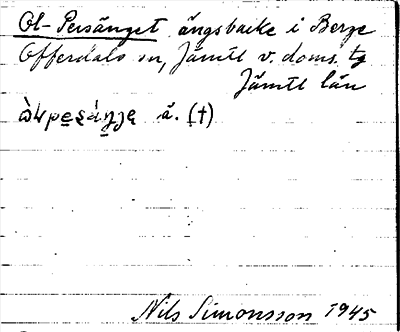 Ol-Persänget ängsbacke i Berge
Offerdals sn, Jämtl v. doms. tg
Jämtl län
ä. (†)
Nils Simonsson 1945